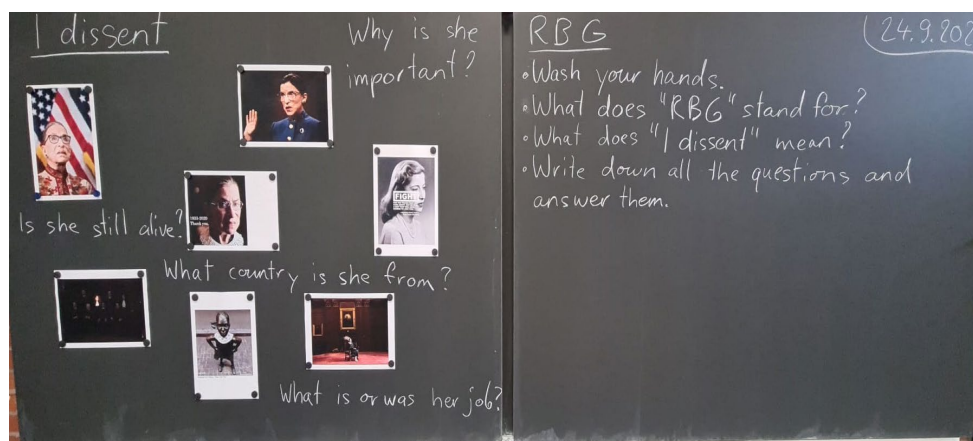 I dissent
Why is she
important?
FIGHT
1933-2020
Thank you.
Is she still alive?
What country is she from?
What is or was her job?
RBG
24.9.202
• Wash your hands.
• What does "RBG" stand for?
• What does "I dissent" mean?
• Write down all the questions and
answer them.